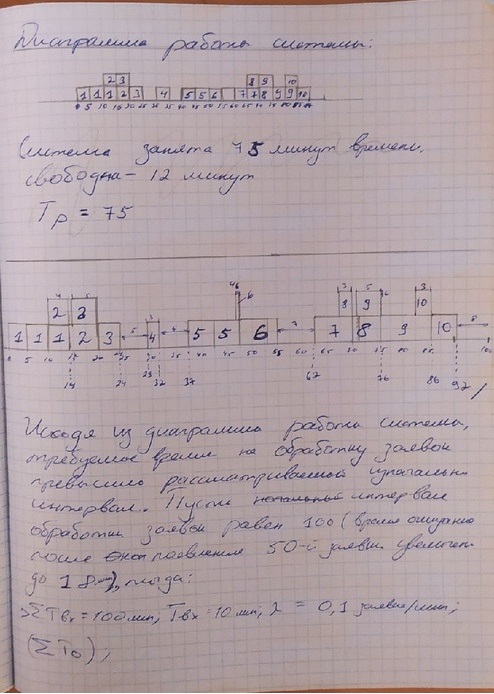 Диаграмма работы системы:
2 3 8 9 10
1 1 1 2 3 4 5 5 6 7 7 8 9 9 10
0 5 10 15 20 25 30 35 40 45 50 55 60 65 70
Система занята 75 минут времени,
свободна - 12 минут
Tр = 75
46
4 5 3 5 3
2 3 6 8 9 10
1 1 1 2 3 4 5 5 6 7 8 9 10
0 5 10 20 30 35 40 45 50 55 60
14 24 29 32 37 67 76 86 92
Исходя из диаграммы работы системы,
требуемое время на обработку заявок
превысило рассматриваемый изначально
интервал. Пусть интервал
обработки заявок равен 100 (время ожидания
после появления 50-й заявки увеличен
до 18 мин), тогда:
ΣTвх = 100 мин, Tвх = 10 мин, λ = 0,1 заявка/мин;
(ΣTо),